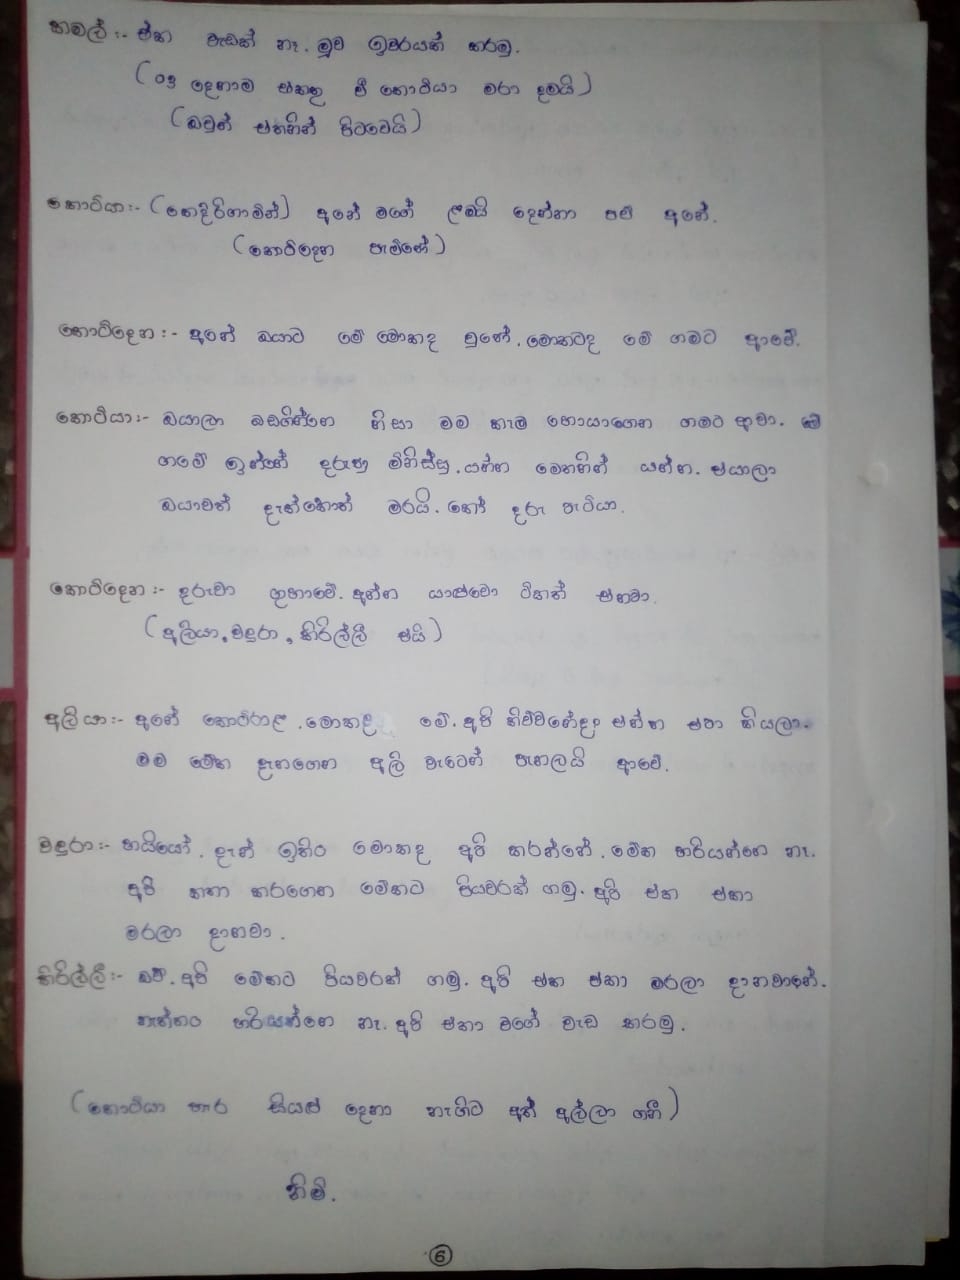 කමල් :- ඒක වැඩක් නෑ. මූව ඉවරයක් කරමු.
(03 දෙනාම එකතු වී කොටියා මරා දමයි)
(ඔවුන් එතනින් පිටවෙයි)
කොටියා :- (කෙඳිරිගාමින්) අනේ මගේ ළමයි දෙන්නා පව් අනේ.
(කොටිදෙන පැමිණේ)
කොටිදෙන :- අනේ ඔයාට මේ මොකද වුනේ. මොකටද මේ ගමට ආවේ.
කොටියා :- ඔයාලා බඩගින්නෙ නිසා මම කෑම හොයාගෙන ගමට ආවා. මේ
ගමේ ඉන්නේ දරුණු මිනිස්සු. යන්න මෙතනින් යන්න. එයාලා
ඔයාවත් දැක්කොත් මරයි. කෝ දරු පැටියා.
කොටිදෙන :- දරුවා ගුහාවේ. අන්න යාළුවො ටිකත් එනවා.
(අලියා, වඳුරා, කිරිල්ලී එයි)
අලියා :- අනේ කොටිරාළ. මොකද මේ. අපි කිව්වනේද එන්න එපා කියලා.
මම මේක දැනගෙන අලි වැටෙන් පැනලයි ආවේ.
වඳුරා :- හයියෝ. දැන් ඉතිං මොකද අපි කරන්නේ. මේක හරියන්නෙ නෑ.
අපි කතා කරගෙන මේකට පියවරක් ගමු. අපි එක එකා
මරලා දානවා.
කිරිල්ලී :- ඔව්. අපි මේකට පියවරක් ගමු. අපි එක එකා මරලා දානවානේ.
නැත්තං හරියන්නෙ නෑ. අපි එකා වගේ වැඩ කරමු.
(කොටියා හැර සියළු දෙනා නැගිට අත් අල්ලා ගනී)
නිමි.
6